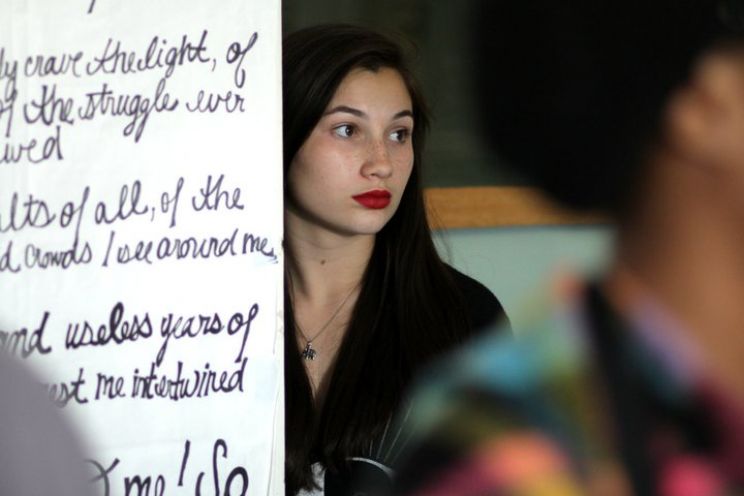 ly crave the light, of
of the struggle ever
ewed
ults of all, of the
d crowds I see around me,
and useless years of
est me intertwined
me! So